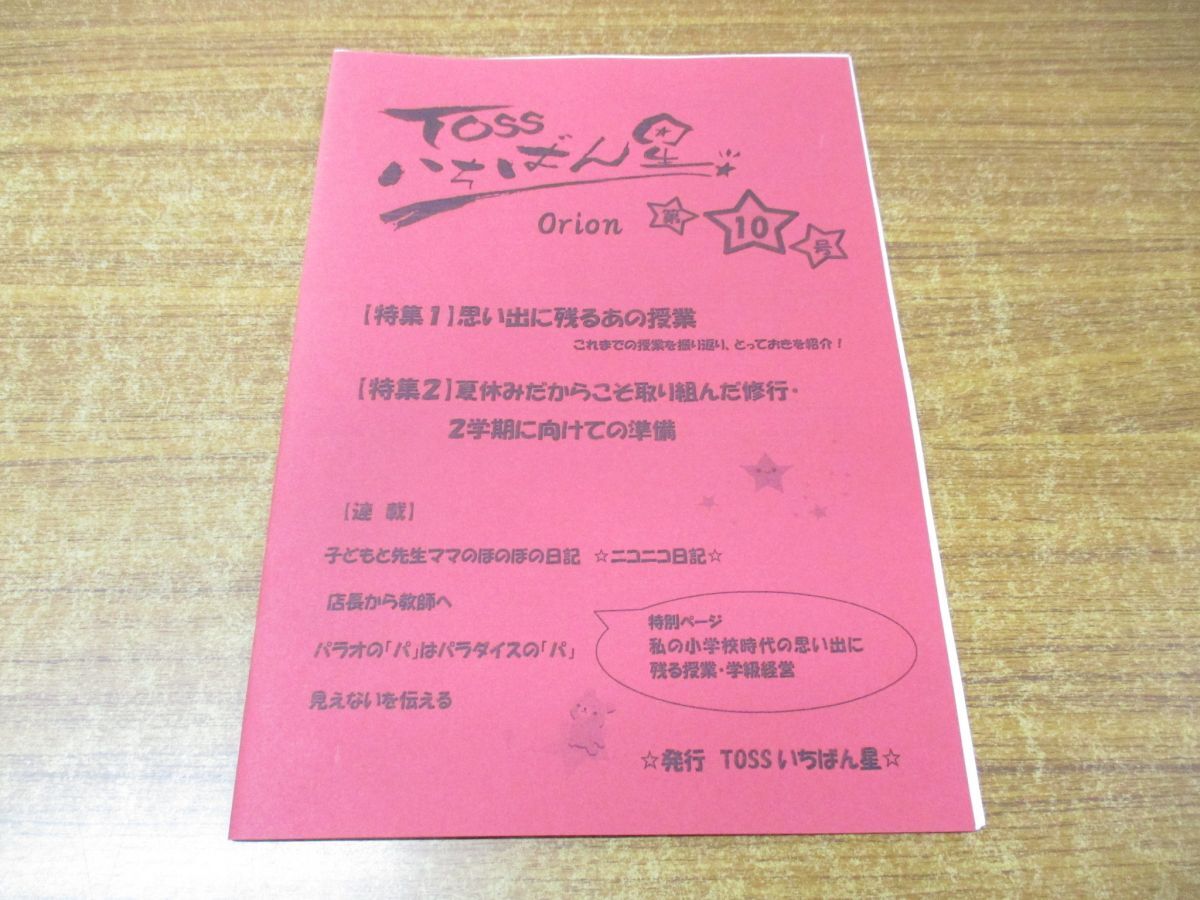 TOSS
いちばん星
Orion 第10号
【特集1】思い出に残るあの授業
これまでの授業を振り返り、とっておきを紹介！
【特集2】夏休みだからこそ取り組んだ修行・
2学期に向けての準備
【連 載】
子どもと先生ママのほのぼの日記 ☆ニコニコ日記☆
店長から教師へ
パラオの「パ」はパラダイスの「パ」
見えないを伝える
特別ページ
私の小学校時代の思い出に
残る授業・学級経営
☆発行 TOSSいちばん星☆